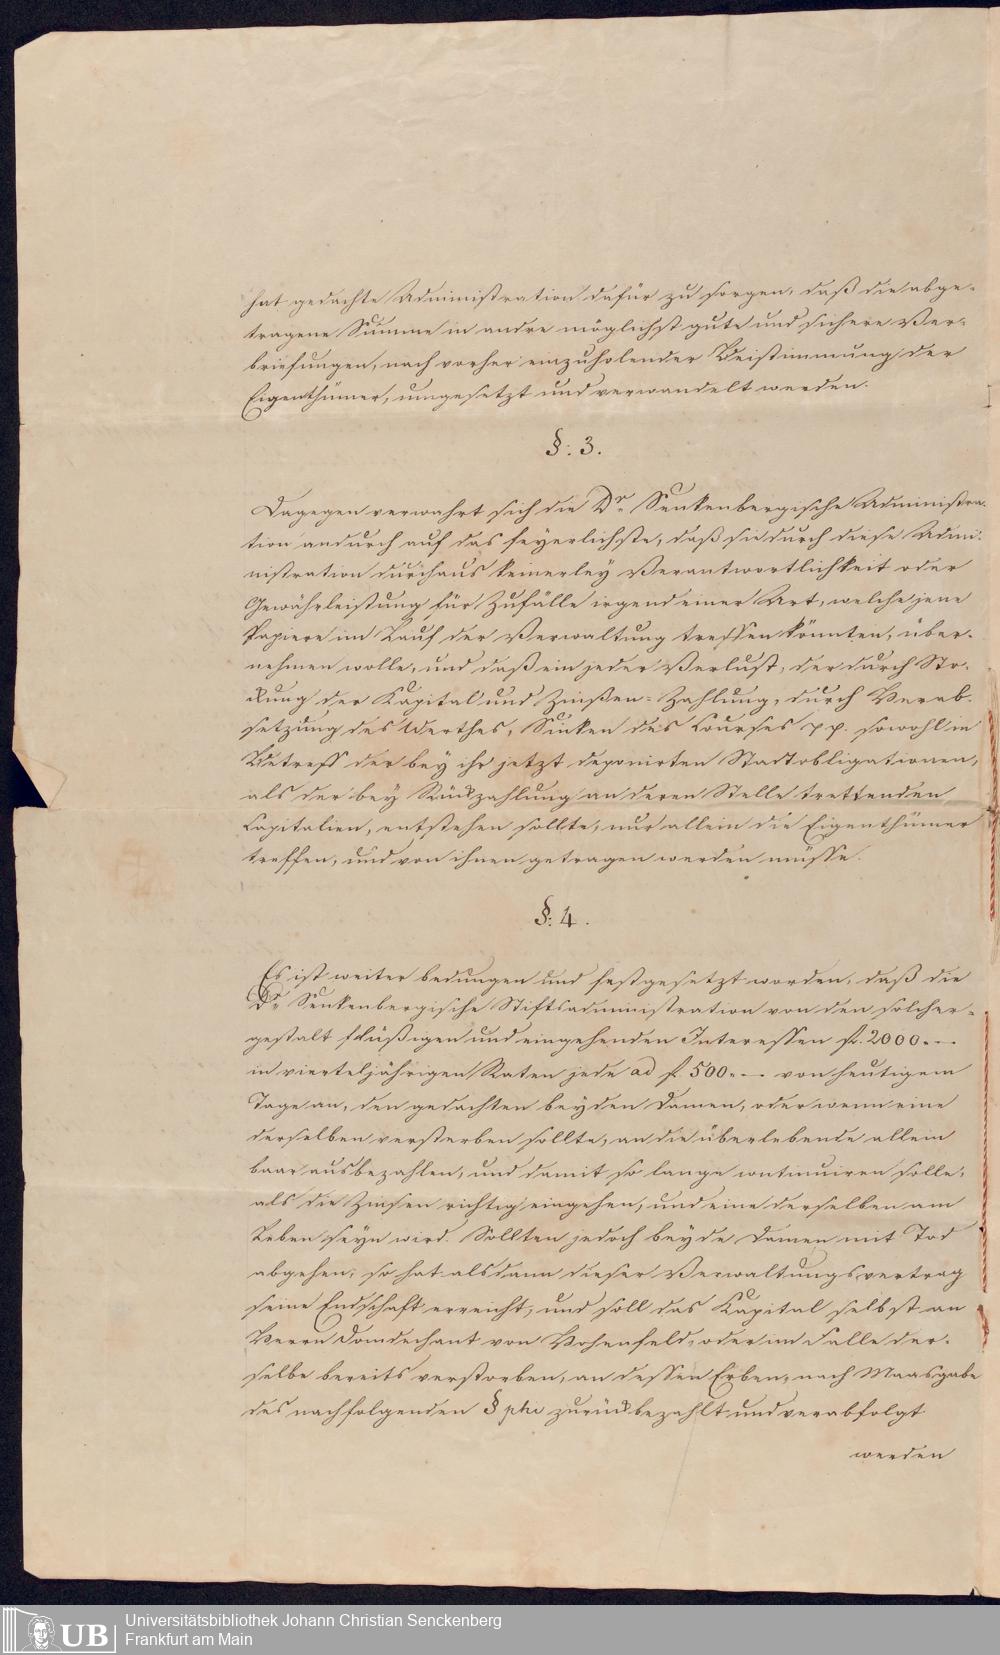 hat gedachte Administration dafür zu sorgen, daß die abge-
tragene Summe in andre möglichst gute und sichere Ver-
briefungen, nach vorher einzuholender Beistimmung der
Eigenthümer, umgesetzt und verwandelt werden.
§. 3.
Dagegen verwahrt sich die Dr. Senkenbergische Administra-
tion andurch auf das feyerlichste, daß sie durch diese Admi-
nistration durchaus keinerley Verantwortlichkeit oder
Gewährleistung für Zufälle irgend einer Art, welche jene
Papiere im Lauf der Verwaltung treffen könnten, über-
nehmen wolle, und daß ein jeder Verlust, der durch Sto-
kung der Kapital und Zinßen-Zahlung, durch Herab-
setzung des Werthes, Sinken des Courses pp. sowohl in
Betreff der bey ihr jetzt deponirten Stadtobligationen,
als der bey Rückzahlung an deren Stelle trettenden
Capitalien, entstehen sollte, nur allein die Eigenthümer
treffen, und von ihnen getragen werden müsse.
§. 4.
Es ist weiter bedungen und festgesetzt worden, daß die
Dr. Senkenbergische Stiftsadministration von den solcher-
gestalt flüßigen und eingehenden Interessen fl. 2000.—
in vierteljährigen Raten jede ad fl. 500.— von heutigem
Tage an, den gedachten beyden Damen, oder wenn eine
derselben versterben sollte, an die überlebende allein
baar ausbezahlen, und damit so lange continuiren solle,
als die Zinsen richtig eingehen, und eine derselben am
Leben seyn wird. Sollten jedoch beyde Damen mit Tod
abgehen, so hat alsdann dieser Verwaltungsvertrag
seine Endschaft erreicht, und soll das Kapital selbst an
Herrn Domdechant von Hohenfeld, oder im Falle der-
selbe bereits verstorben, an dessen Erben, nach Maasgabe
des nachfolgenden § phi zurückbezahlt und verabfolgt
werden
UB
Universitätsbibliothek Johann Christian Senckenberg
Frankfurt am Main